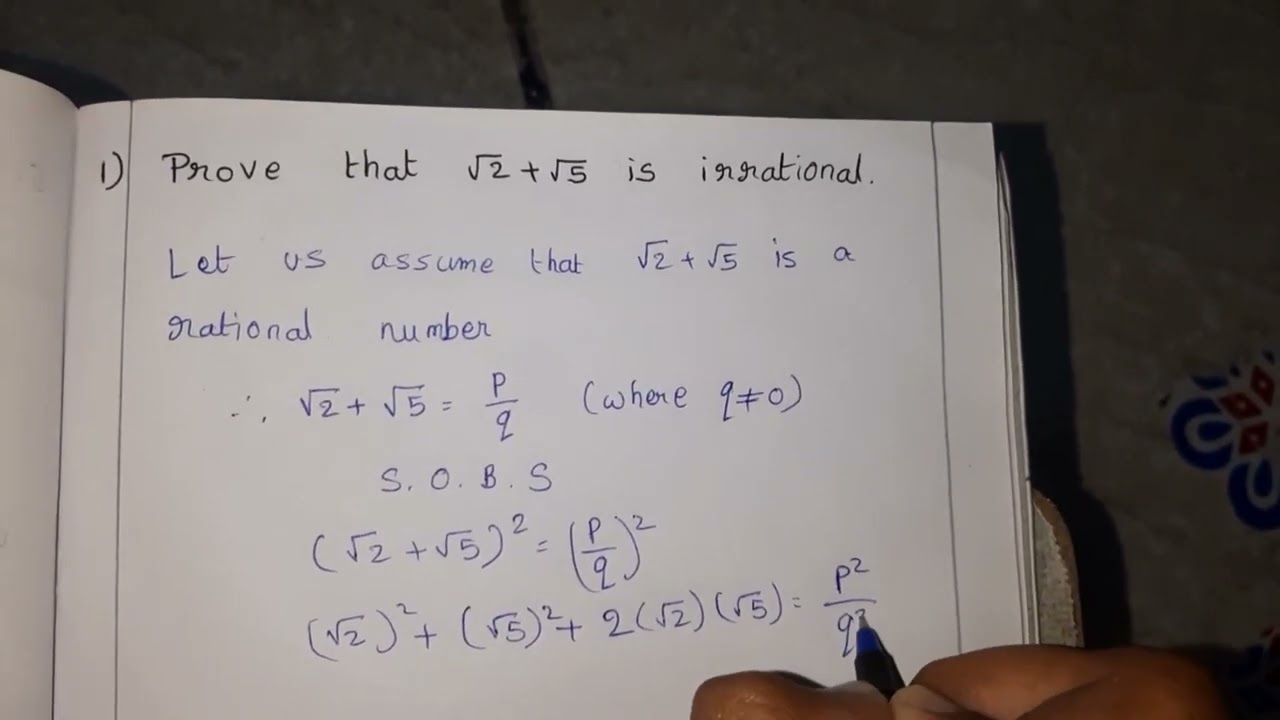 1) Prove that √2 + √5 is irrational.
Let us assume that √2 + √5 is a
rational number
∴ √2 + √5 = p/q (where q ≠ 0)
S. O. B. S
(√2 + √5)² = (p/q)²
(√2)² + (√5)² + 2(√2)(√5) = p²/q²